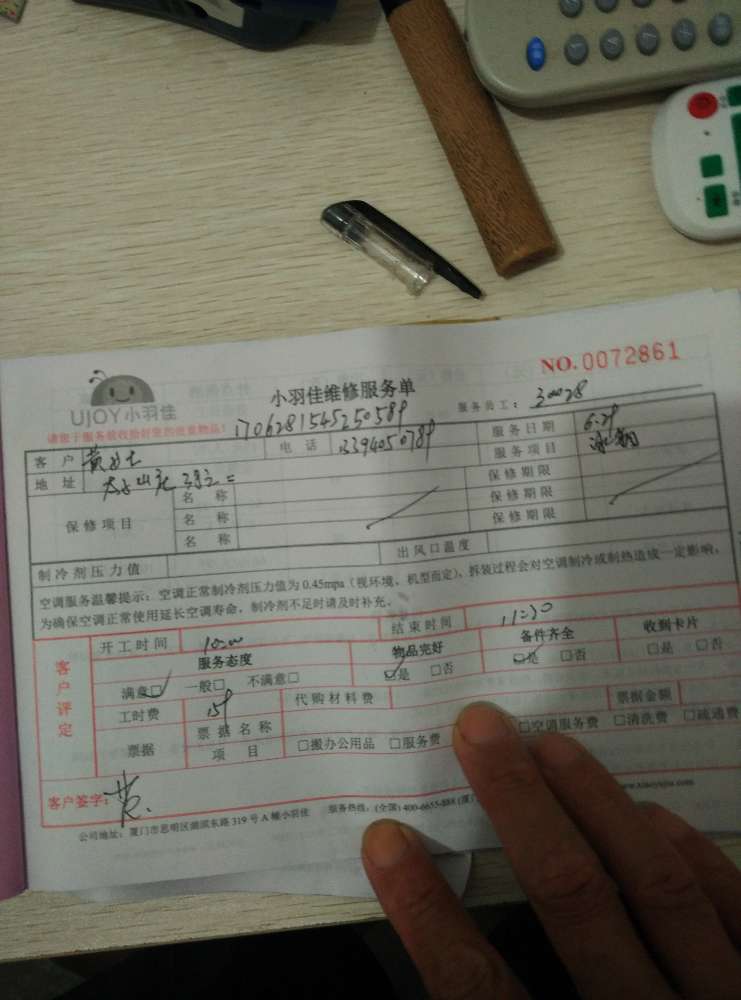 NO.0072861
UJOY小羽佳
小羽佳维修服务单
服务员工：30028
请您于服务前收拾好您的贵重物品！
客户 黄 电话 服务日期 6.29
地址 服务项目
保修项目 名称 保修期限
名称 保修期限
名称 保修期限
制冷剂压力值 出风口温度
空调服务温馨提示：空调正常制冷剂压力值为0.45mpa（视环境、机型而定），拆装过程会对空调制冷或制热造成一定影响，
为确保空调正常使用延长空调寿命，制冷剂不足时请及时补充。
客户评定
开工时间 10:00 结束时间 11:30
服务态度 物品完好 备件齐全 收到卡片
满意□ 一般□ 不满意□ □是 □否 □是 □否 □是 □否
工时费 159 代购材料费
票据 票据名称 票据金额
项目 □搬办公用品 □服务费 □空调服务费 □清洗费 □疏通费
客户签字：黄
公司地址：厦门市思明区湖滨东路319号A幢小羽佳 服务热线：(全国) 400-6655-888 (厦
www.xiaoyujia.com